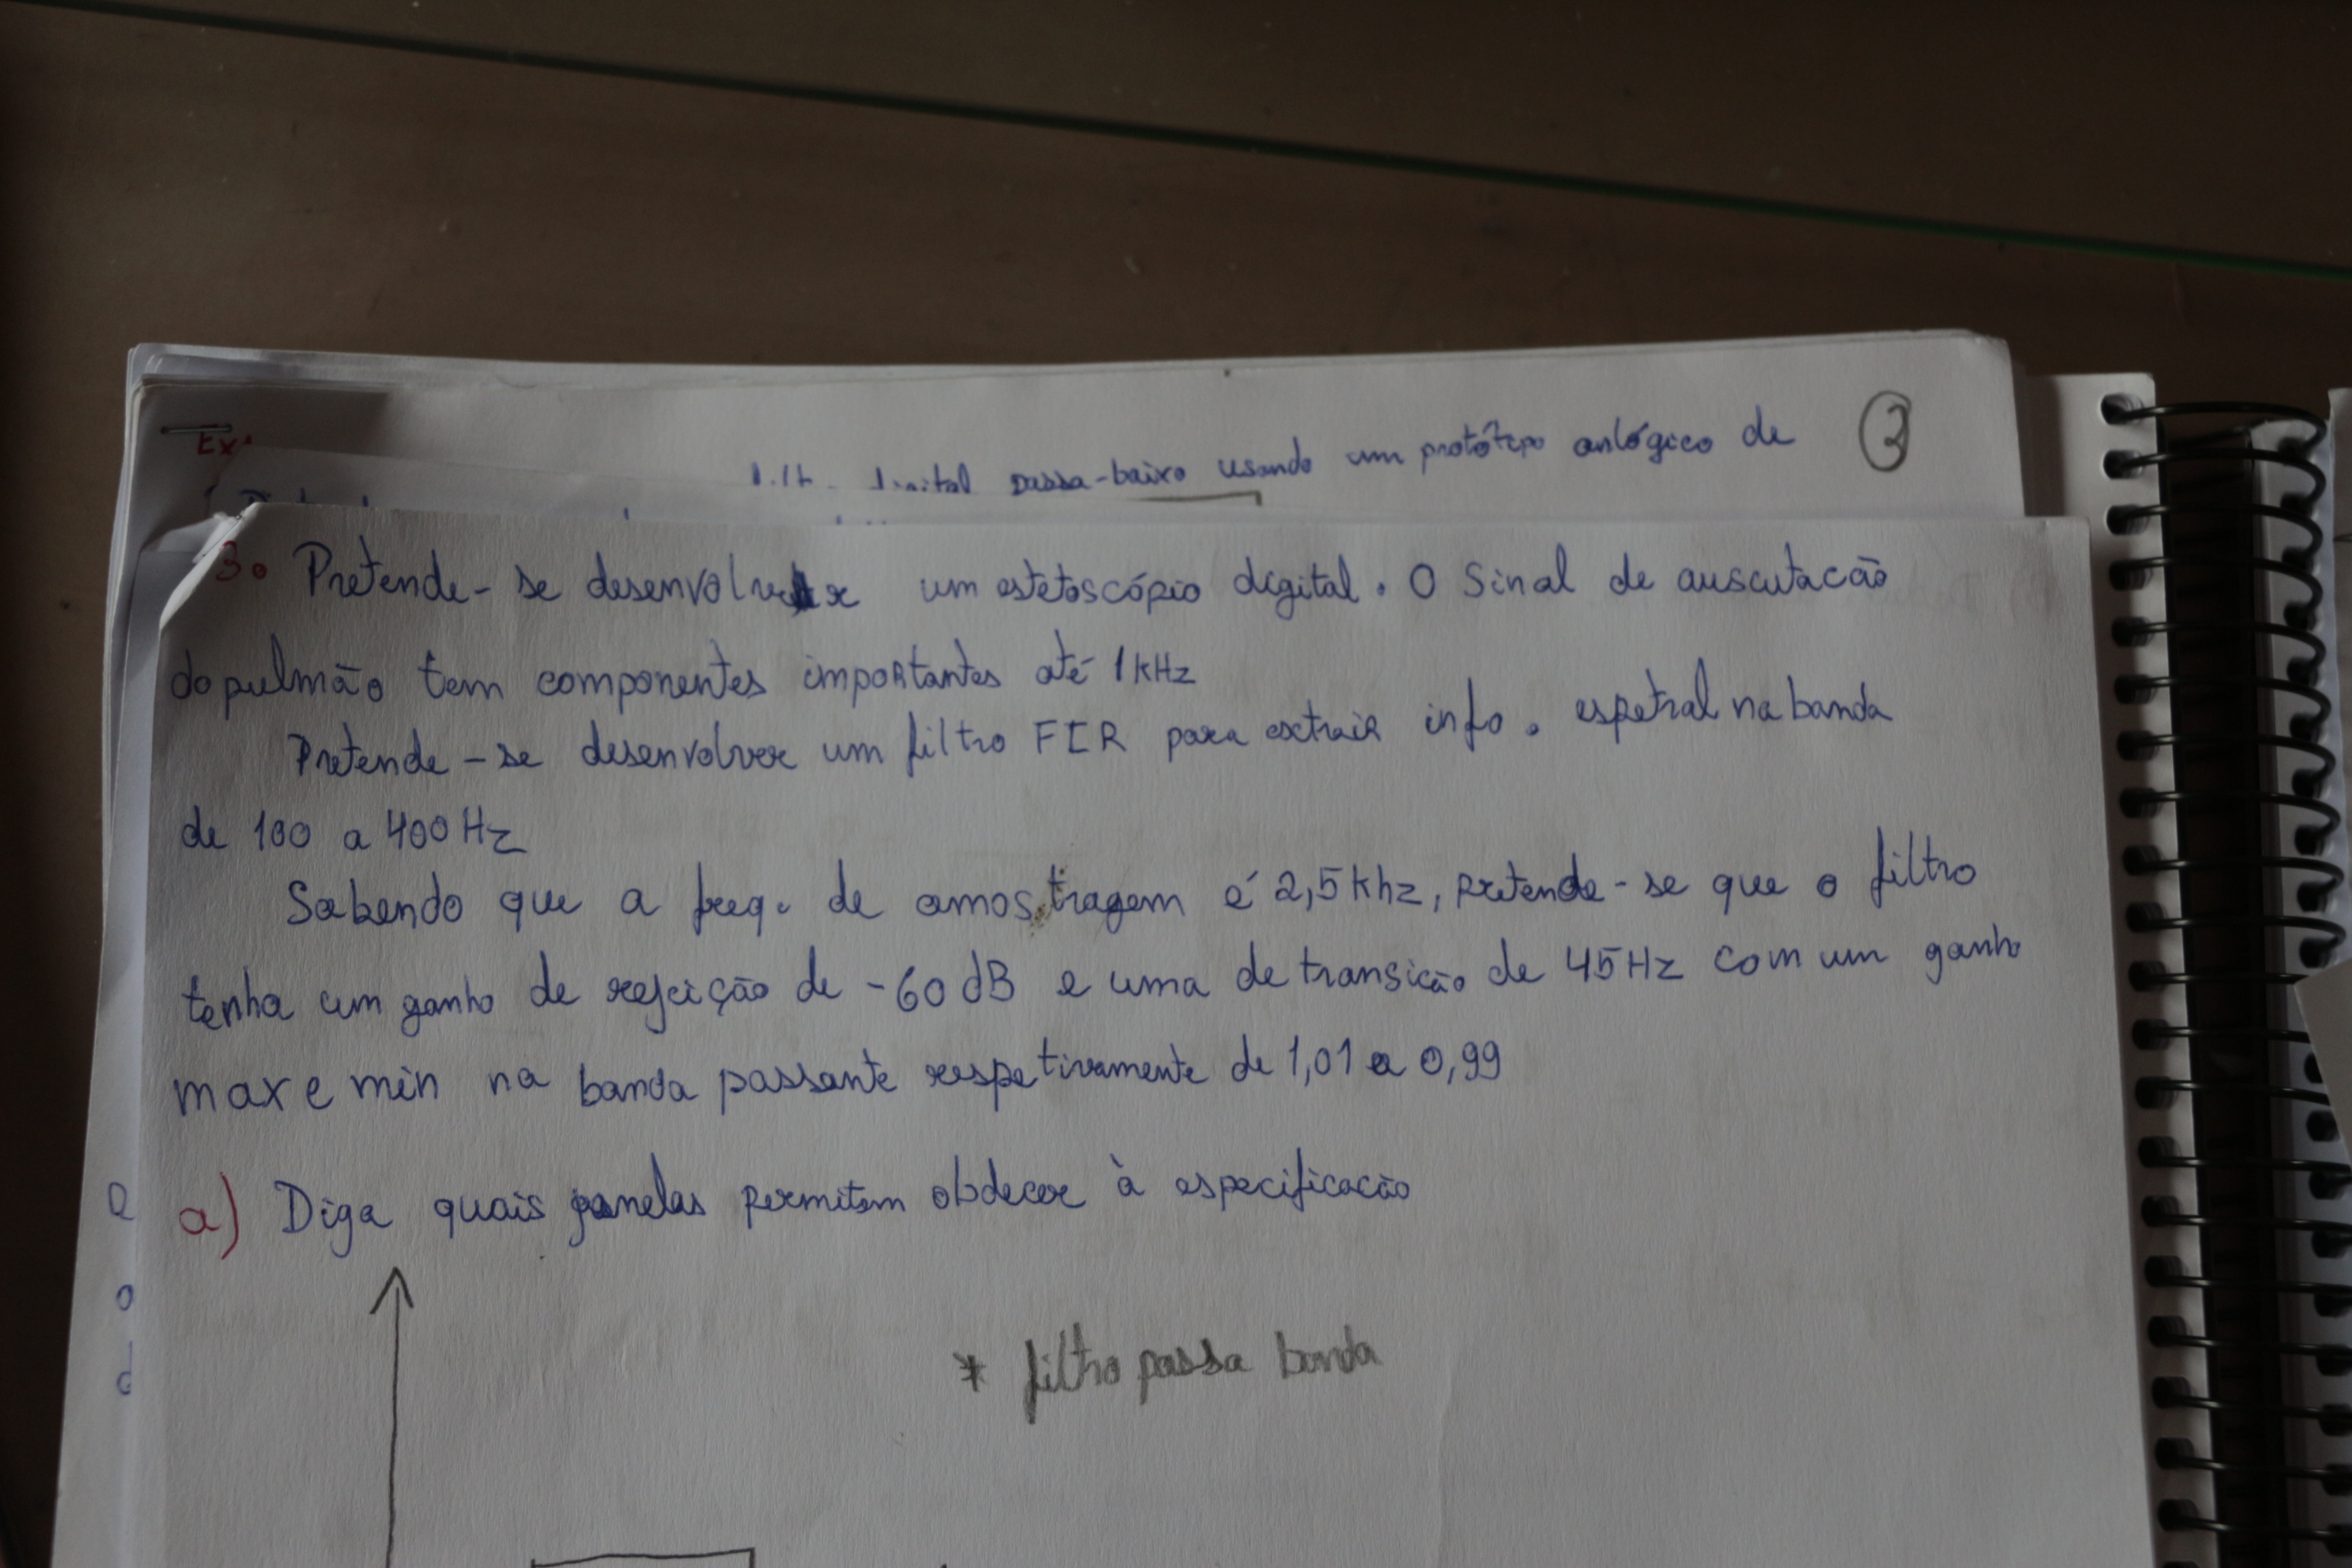 Ex.
digital passa-baixo usando um protótipo anlógico de
3
3. Pretende-se desenvolver um estetoscópio digital. O Sinal de auscutacão
do pulmão tem componentes importantes até 1KHz
Pretende-se desenvolver um filtro FIR para extrair info. espetral na banda
de 100 a 400 Hz
Sabendo que a freq. de amostragem é 2,5khz, pretende-se que o filtro
tenha um ganho de rejeição de -60 dB e uma de transicão de 45Hz com um ganho
max e min na banda passante respetivamente de 1,01 e 0,99
a) Diga quais janelas permitem obdecer à especificacão
* filtro passa banda